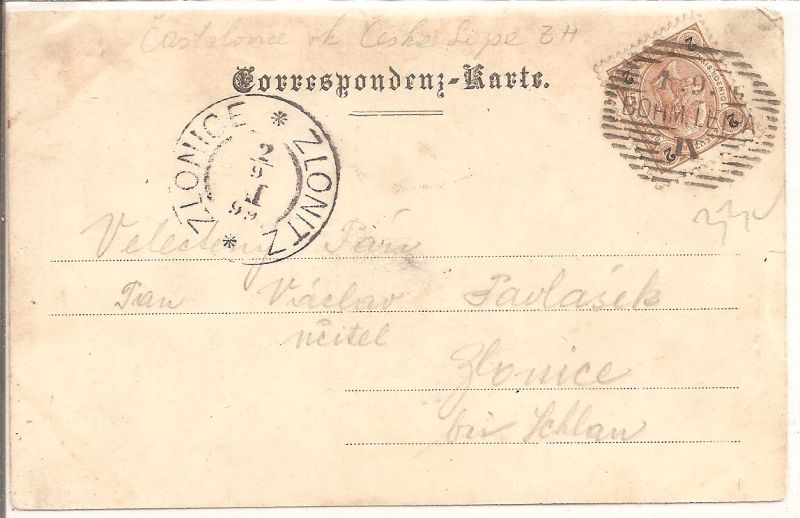 Častolovice ok Česke Lípe ZH
Correspondenz-Karte.
ZLONICE * ZLONITZ *
BÖHM. LEIPA
Velectěný Pán
Pan Václav Pavlašek
učitel
Zlonice
bei Schlan